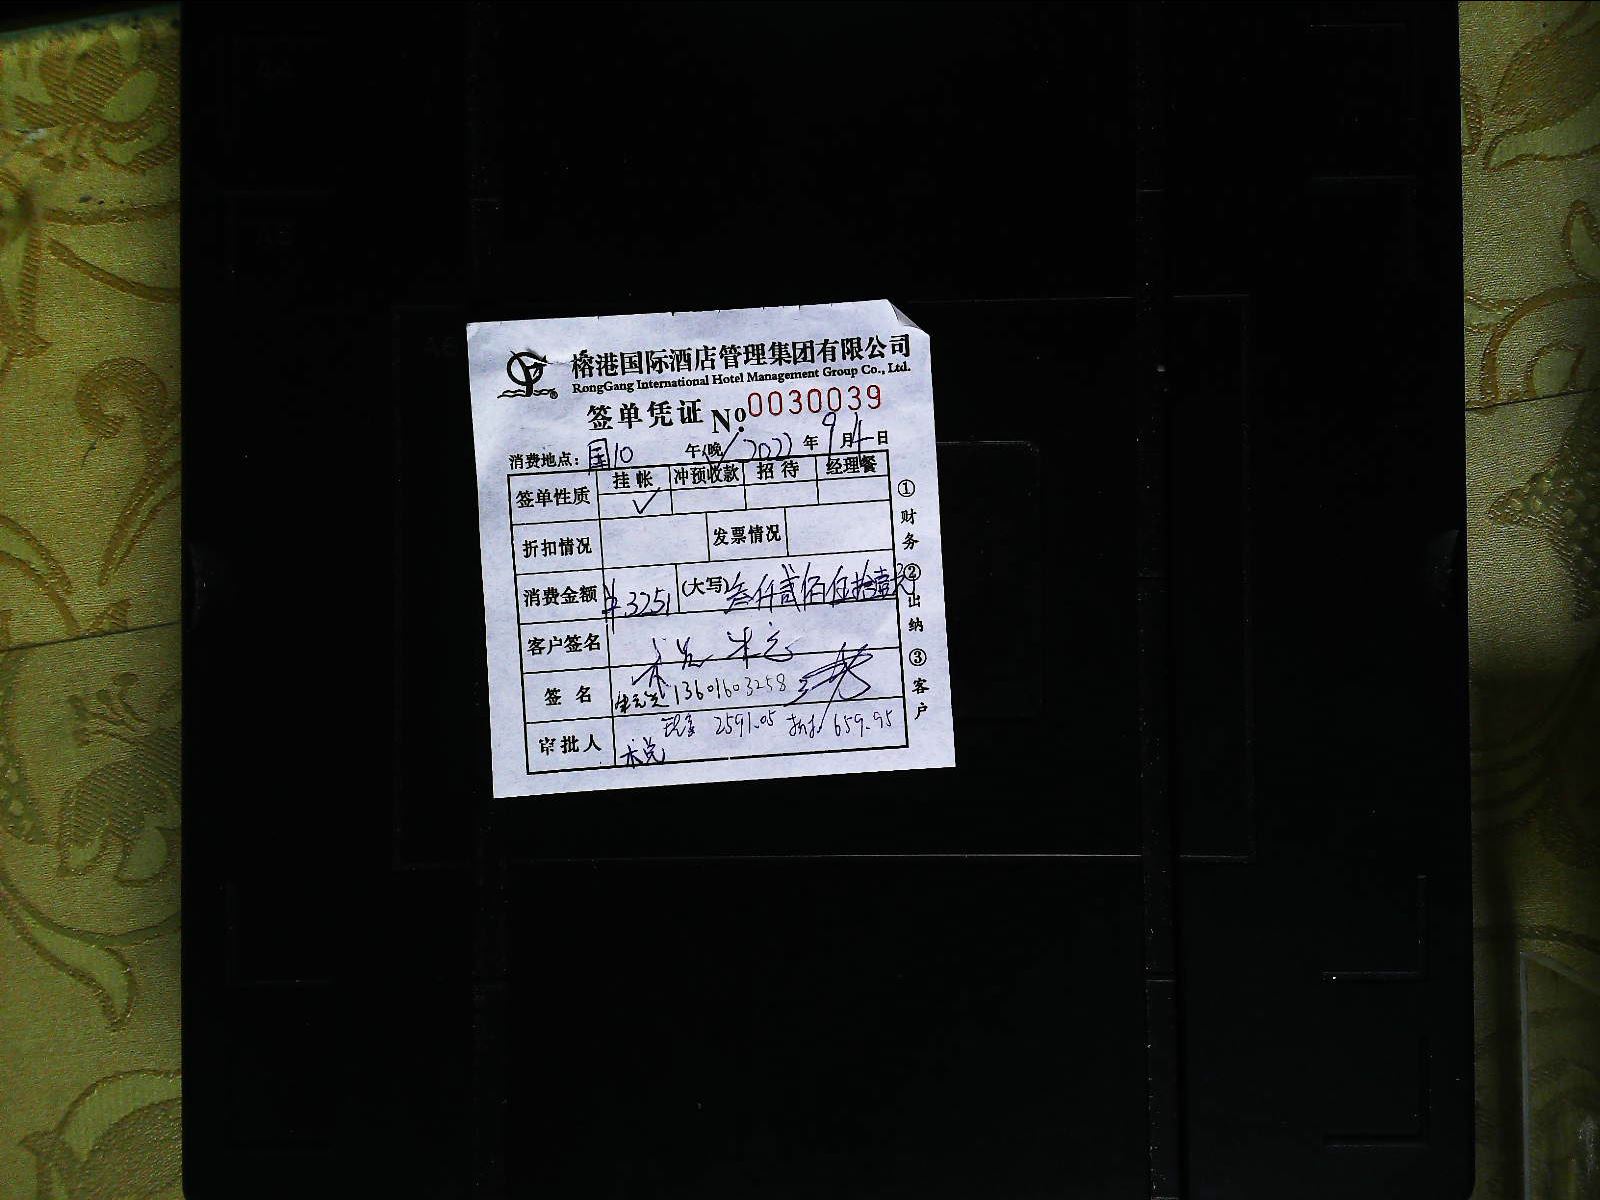 榕港国际酒店管理集团有限公司
RongGang International Hotel Management Group Co., Ltd.
签单凭证 No. 0030039
消费地点: 国10 午(晚 2022 年 9 月 4 日
签单性质 挂帐 冲预收款 招待 经理餐
✓
折扣情况 发票情况
消费金额 ¥3251 (大写) 叁仟贰佰伍拾壹元
客户签名
签名 13601603258
2591.05 659.95
审批人
①财务 ②出纳 ③客户